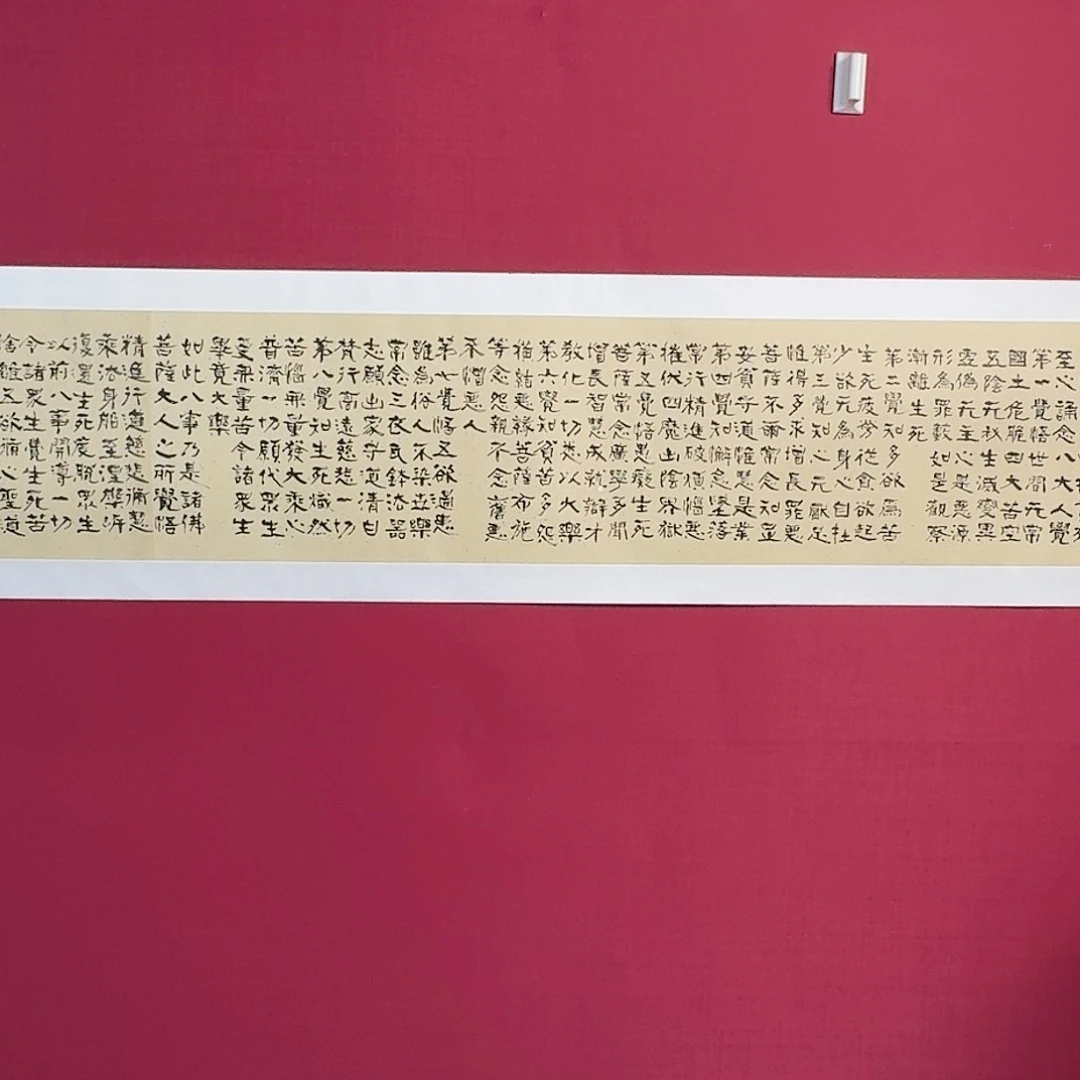 至心誦念八大人覺
第一覺悟世間无常
國土危脆四大苦空
五陰无我生滅變異
虛偽无主心是惡源
形為罪藪如是觀察
漸離生死
第二覺知多欲為苦
生死疲勞從貪欲起
少欲无為身心自在
第三覺知心无厭足
惟得多求增長罪惡
菩薩不爾常念知足
安貧守道惟慧是業
第四覺知懈怠墜落
常行精進破煩惱惡
摧伐四魔出陰界獄
第五覺悟愚癡生死
菩薩常念廣學多聞
增長智慧成就辯才
教化一切悉以大樂
第六覺知貧苦多怨
橫結惡緣菩薩布施
等念怨親不念舊惡
不憎惡人
第七覺悟五欲過患
雖為俗人不染世樂
常念三衣瓦鉢法器
志願出家守道清白
梵行高遠慈悲一切
第八覺知生死熾然
苦惱無量發大乘心
普濟一切願代眾生
受無量苦令諸眾生
畢竟大樂
如此八事乃是諸佛
菩薩大人之所覺悟
精進行道慈悲脩慧
乘法身船至涅槃岸
復還生死度脫眾生
以前八事開導一切
令諸眾生覺生死苦
捨離五欲脩心聖道